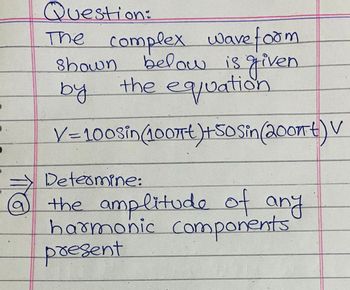 Question:
The complex waveform
shown below is given
by the equation
V=100Sin(100πt)+50Sin(200πt)V
⇒ Determine:
ⓐ the amplitude of any
harmonic components
present